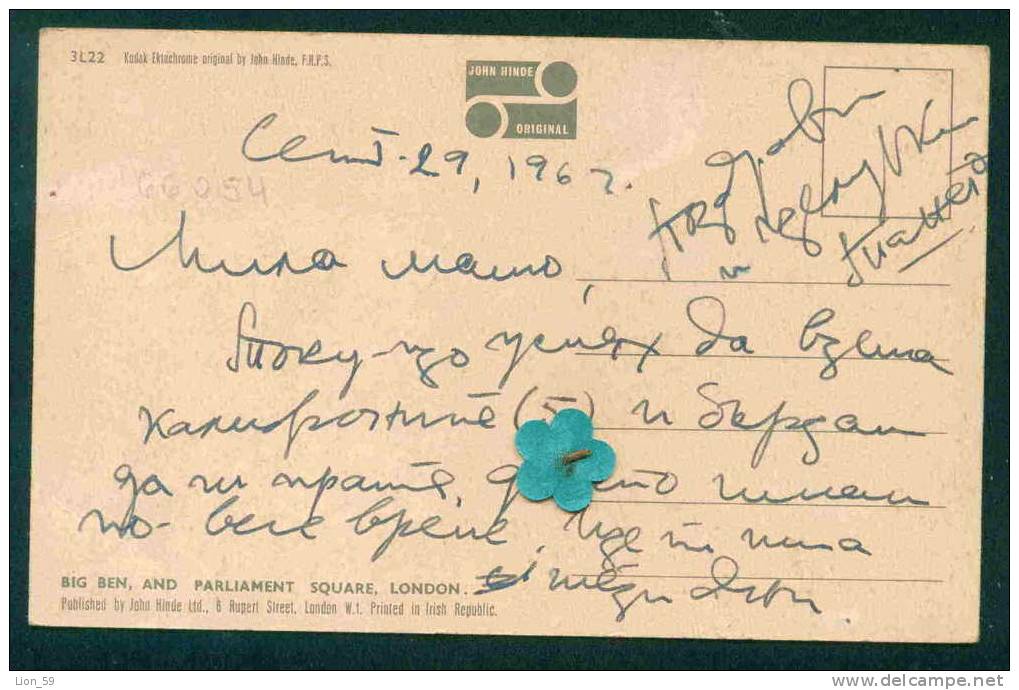 3L22 Kodak Ektachrome original by John Hinde, F.R.P.S.
JOHN HINDE
ORIGINAL
Септ. 29, 196
Поздрави
и целувки
Мила мамо,
Току-що успях да взема
(5) и бързам
да ги пратя,
по-вече време, ще ти пиша
BIG BEN, AND PARLIAMENT SQUARE, LONDON.
Published by John Hinde Ltd., 6 Rupert Street, London W.1. Printed in Irish Republic.
Lion_59
www.delcampe.net